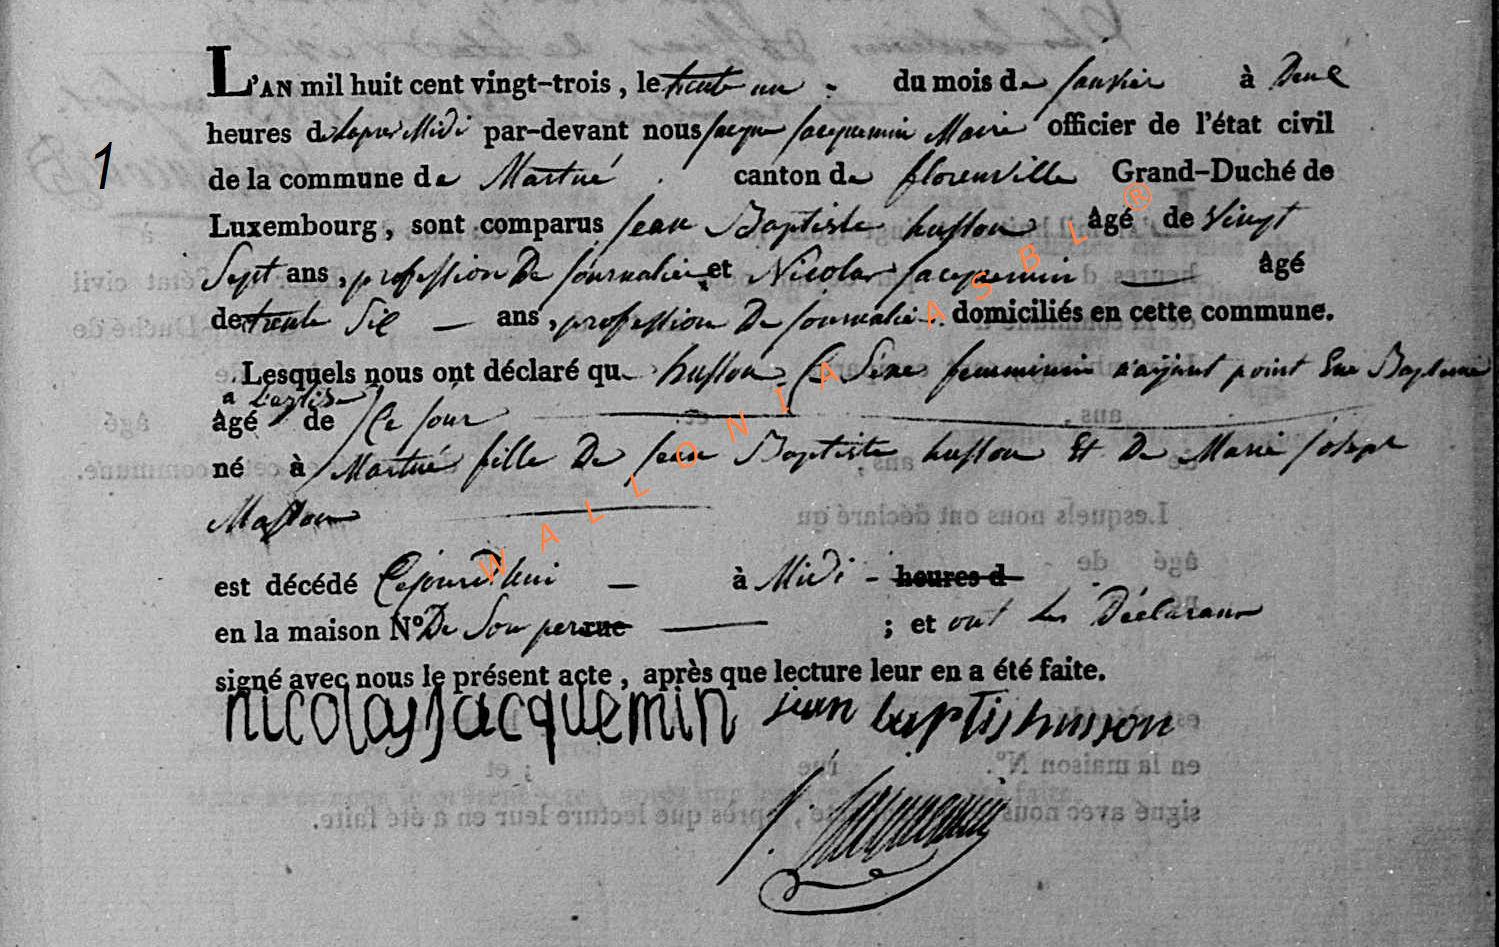 L'AN mil huit cent vingt-trois, le trente un du mois de janvier à Deux
heures de lapres Midi par-devant nous jacque jacquemin Maire officier de l'état civil
1
de la commune de Martué canton de florenville Grand-Duché de
Luxembourg, sont comparus jean Baptiste husson âgé de Vingt
Sept ans, profession De journalier et Nicolas jacquemin âgé
de trente Six ans, profession De journalier domiciliés en cette commune.
Lesquels nous ont déclaré que husson Sexe femminin n'aijant point Eue Bapteme
a L'eglise
âgé de Ce jour
né à Martué fille De jean Baptiste husson Et De Marie joseph
Masson
est décédé Cejourd'hui à Midi - heures d
en la maison N° De Son per rue ; et ont Les Déclarans
signé avec nous le présent acte, après que lecture leur en a été faite.
nicolas jacquemin jean baptis husson
j. jacquemin
WALLONIA ASBL ®